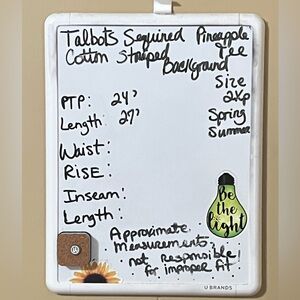 Talbots Sequined Pineapple
Cotton Striped Tee
Background
Size
2Xp
Spring
Summer
PTP: 24"
Length: 27"
Waist:
RISE:
Inseam:
Length:
Approximate
measurements,
not responsible
for improper fit
Be
the
light
U BRANDS